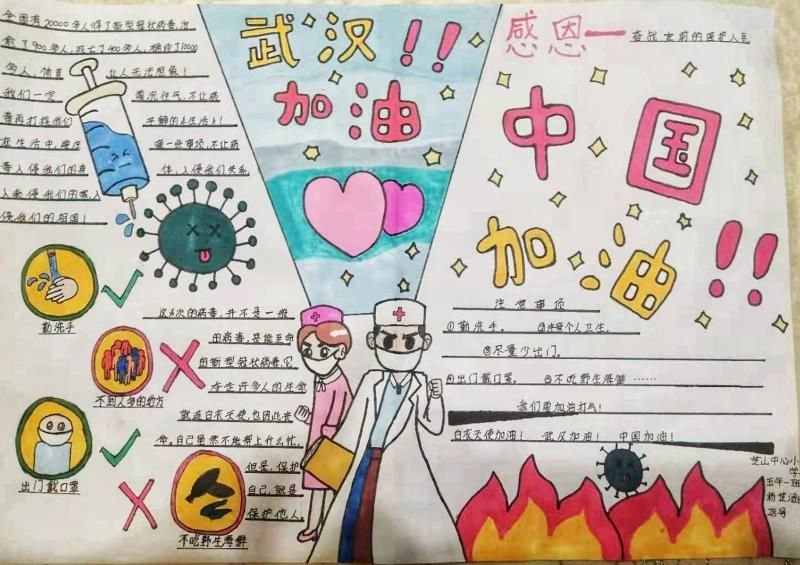 全国有20000多人得了新型冠状病毒,治
愈了900多人,死亡了400多人,确诊了10000
多人,简直让人无法想象!
我们一定
不让病
毒再打扰我们
平静的生活!
在生活中,要注
意一些事项,不让病
毒入侵我们的身
体,入侵我们关系,
侵我们的祖国!
武汉!!
加油
感恩
奋战在前的医护人员
中国
加油!!
勤洗手
不到人多的地方
出门戴口罩
不吃野生海鲜
这次的病毒,并不是一般
的病毒,是能至命
的新型冠状病毒,它
存在许多人的生命
就连白衣天使,也因此丧
命。自己虽然不能帮上什么忙,
但是,保护
自己,就是
保护他人。
注意事项
①勤洗手。 ②注意个人卫生。
③尽量少出门。
④出门戴口罩。 ⑤不吃野生海鲜……
我们要加油打气!
白衣天使加油! 武汉加油! 中国加油!
芝山中心小
学
五年一班
杨芝涵
28号